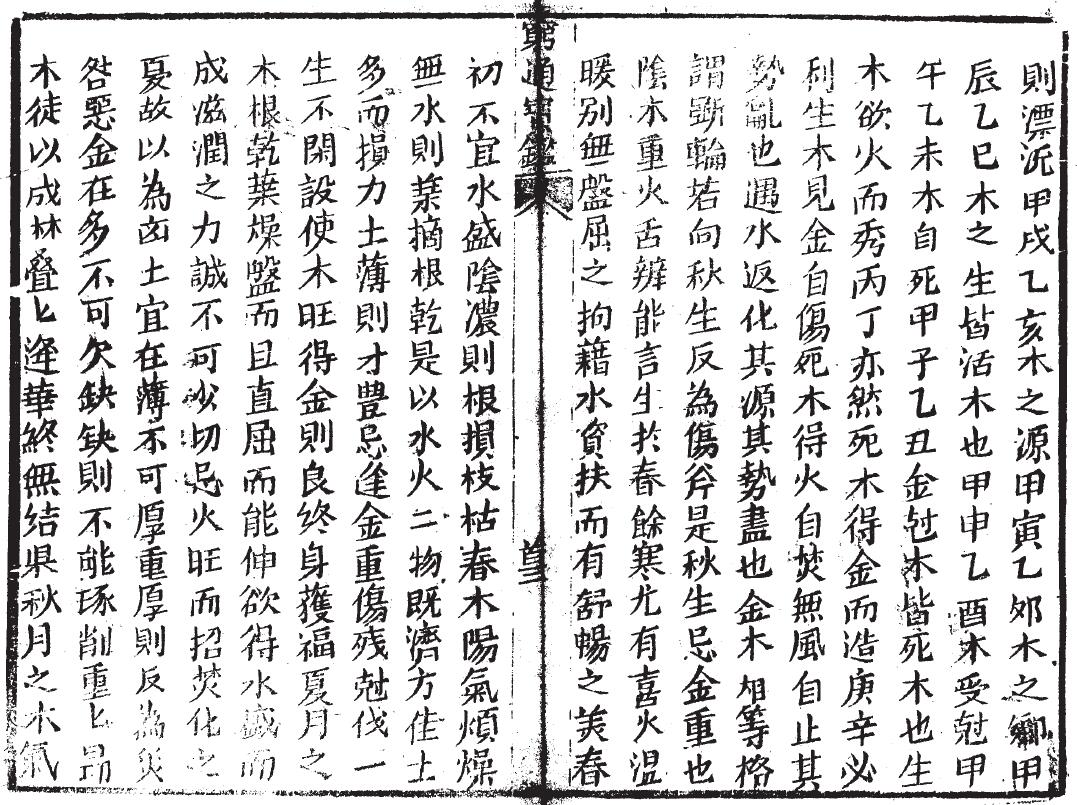 則漂沉甲戌乙亥木之源甲寅乙夘木之鄉甲
辰乙巳木之生皆活木也甲申乙酉木受尅甲
午乙未木自死甲子乙丑金尅木皆死木也生
木欲火而秀丙丁亦然死木得金而造庚辛必
利生木見金自傷死木得火自焚無風自止其
勢亂也遇水返化其源其勢盡也金木相等格
謂斲輪若向秋生反為傷斧是秋生忌金重也
陰木重火舌辨能言生於春餘寒尤有喜火温
暖别無盤屈之拘藉水資扶而有舒暢之美春
窮通寳鑑
初不宜水盛陰濃則根損枝枯春木陽氣煩燥
無水則葉摘根乾是以水火二物既濟方佳土
多而損力土薄則才豊忌逢金重傷残尅伐一
生不閑設使木旺得金則良終身獲福夏月之
木根乾葉燥盤而且直屈而能伸欲得水盛而
成滋潤之力誠不可少切忌火旺而招焚化之
憂故以為凶土宜在薄不可厚重厚則反為災
咎惡金在多不可欠缺缺則不能琢削重匕昂
木徒以成林叠匕逢華終無结果秋月之木氣